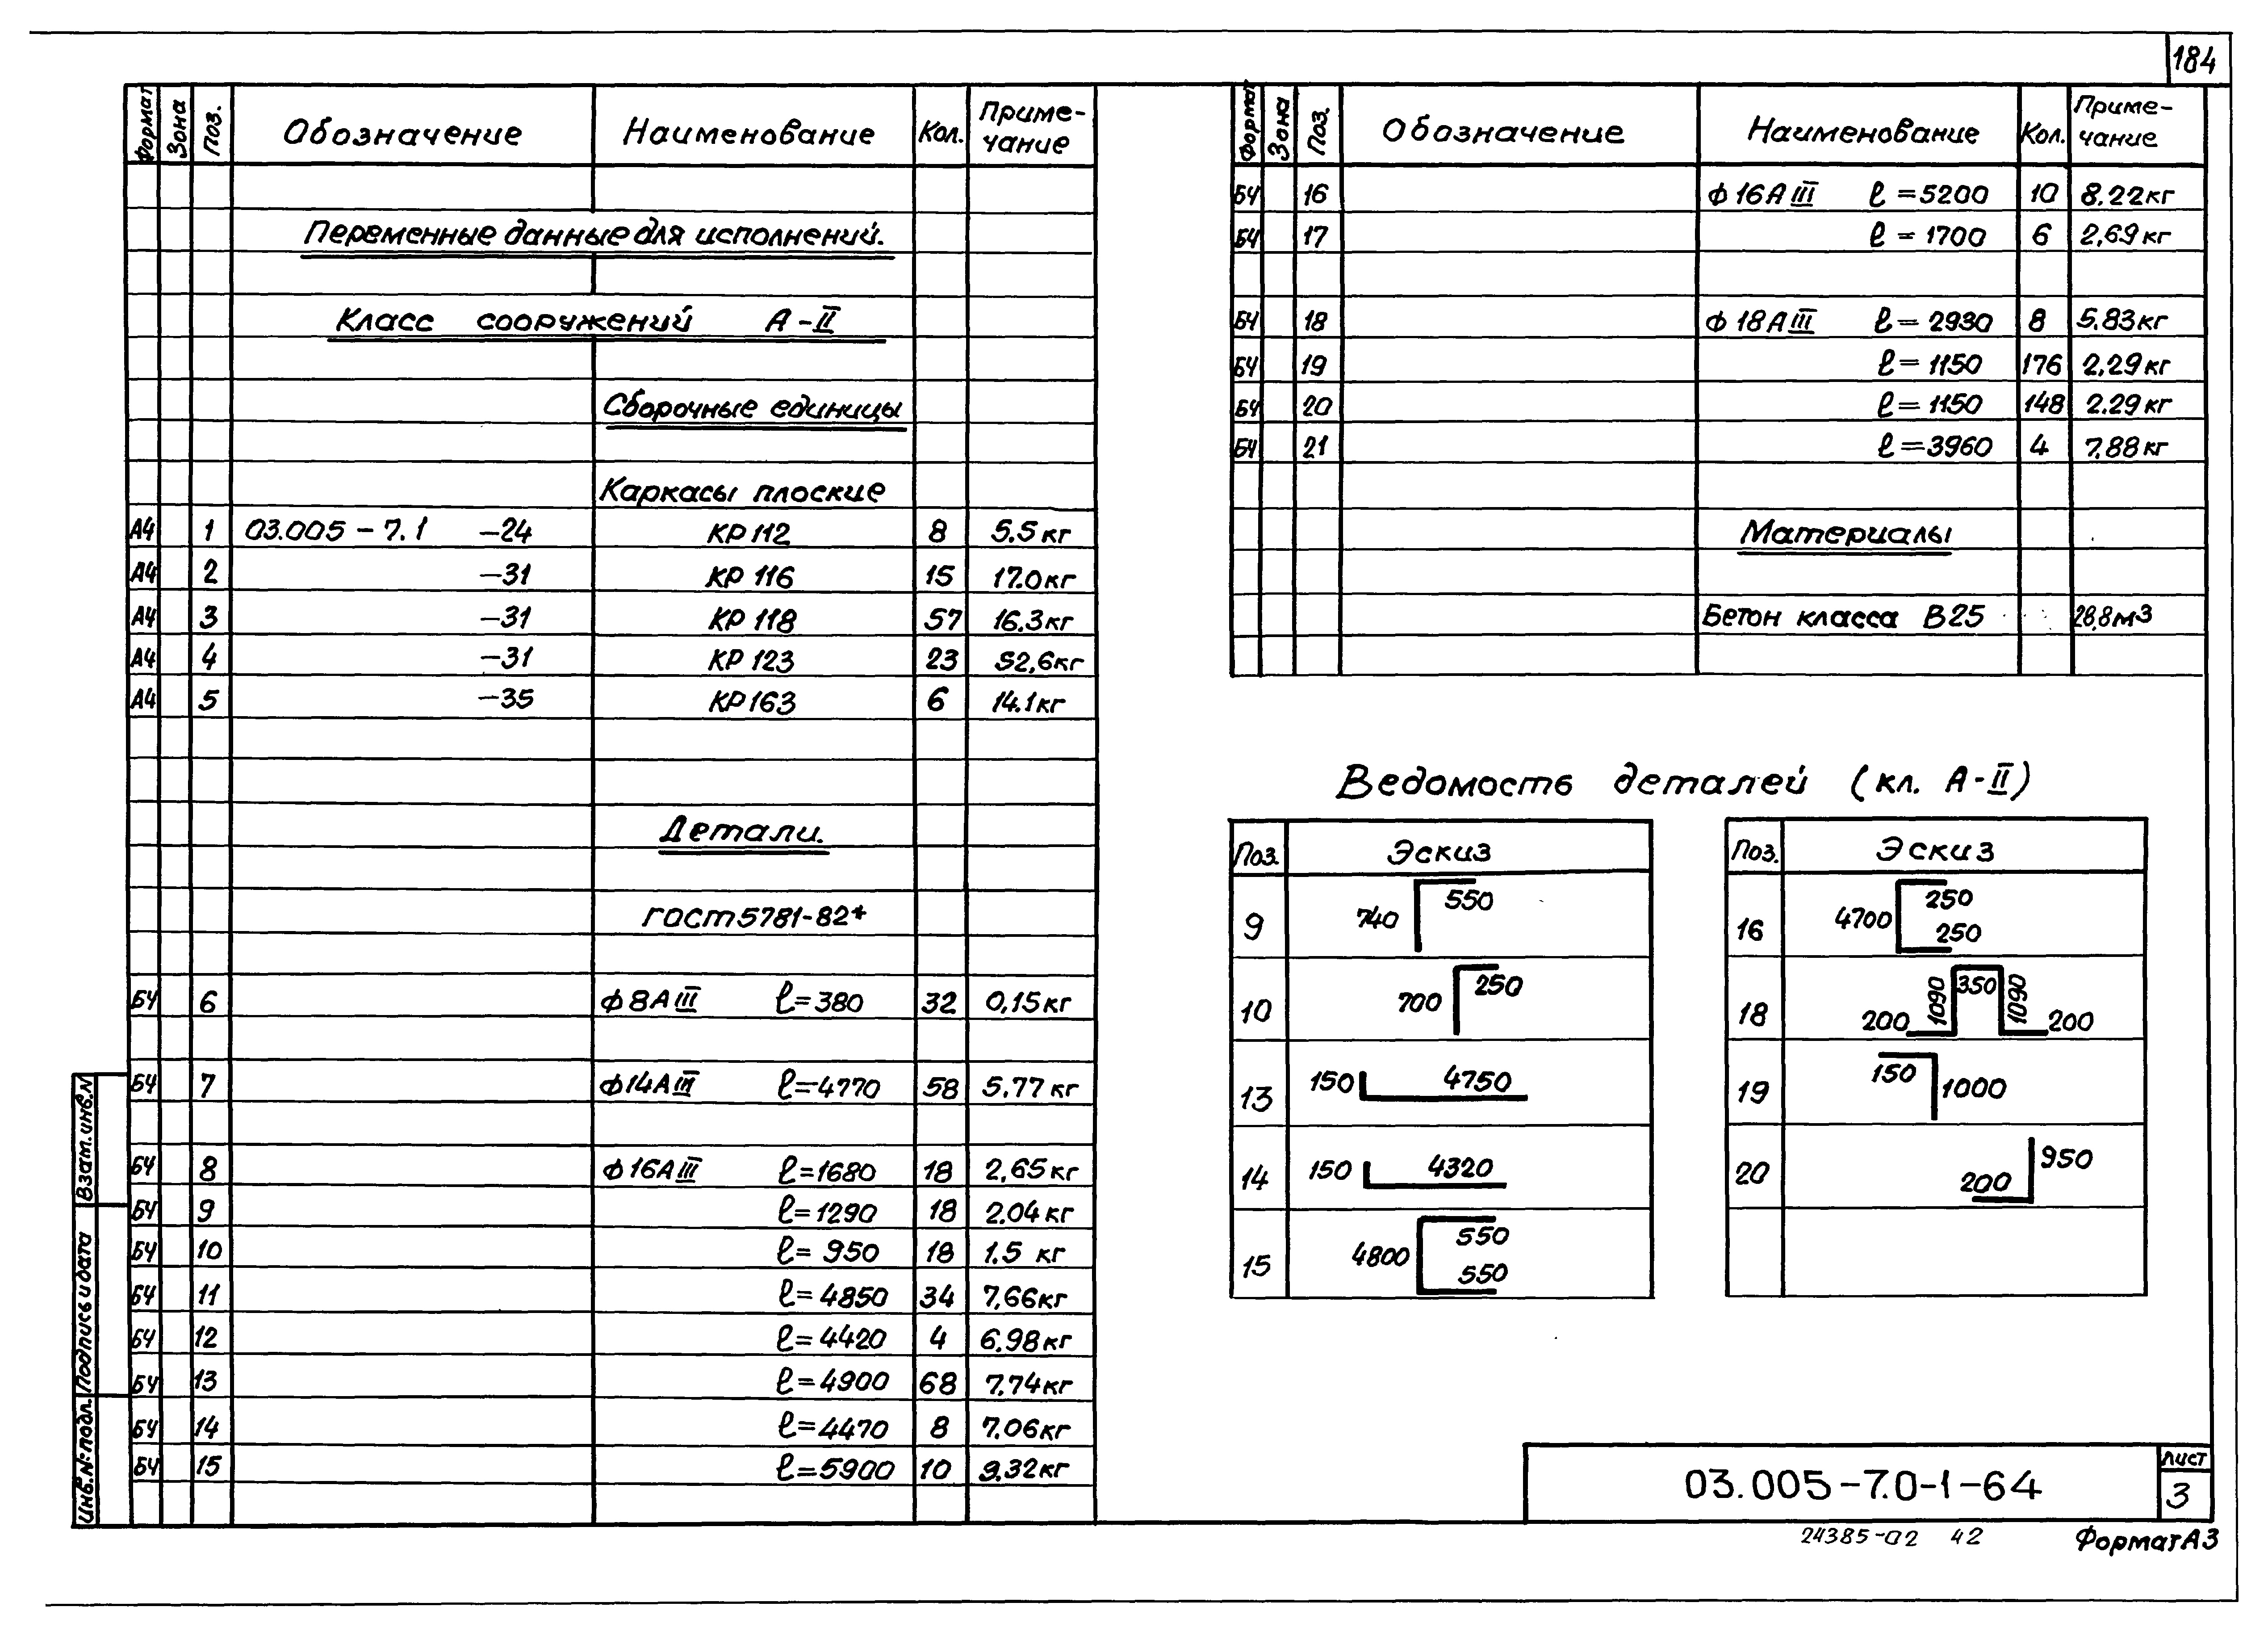 184
Формат Зона Поз. Обозначение Наименование Кол. Приме-чание
Переменные данные для исполнений.
Класс сооружений А-II
Сборочные единицы
Каркасы плоские
А4 1 03.005-7.1 -24 КР112 8 5.5кг
А4 2 -31 КР 116 15 17.0кг
А4 3 -31 КР 118 57 16.3кг
А4 4 -31 КР 123 23 52,6кг
А4 5 -35 КР163 6 14.1кг
Детали.
ГОСТ5781-82*
БЧ 6 Ф8АIII ℓ=380 32 0,15кг
БЧ 7 Ф14АIII ℓ=4770 58 5.77кг
БЧ 8 Ф16АIII ℓ=1680 18 2,65кг
БЧ 9 ℓ=1290 18 2.04кг
БЧ 10 ℓ=950 18 1.5 кг
БЧ 11 ℓ=4850 34 7,66кг
БЧ 12 ℓ=4420 4 6.98кг
БЧ 13 ℓ=4900 68 7.74кг
БЧ 14 ℓ=4470 8 7.06кг
БЧ 15 ℓ=5900 10 9.32кг
Формат Зона Поз. Обозначение Наименование Кол. Приме-чание
БЧ 16 Ф16АIII ℓ=5200 10 8.22кг
БЧ 17 ℓ=1700 6 2,69кг
БЧ 18 Ф18АIII ℓ=2930 8 5.83кг
БЧ 19 ℓ=1150 176 2,29кг
БЧ 20 ℓ=1150 148 2.29кг
БЧ 21 ℓ=3960 4 7.88кг
Материалы
Бетон класса В25 28,8м3
Ведомость деталей (кл. А-II)
Поз. Эскиз
9 740 550
10 700 250
13 150 4750
14 150 4320
15 4800 550 550
Поз. Эскиз
16 4700 250 250
18 200 1090 350 1090 200
19 150 1000
20 200 950
Взам.инв.N
Подпись и дата
Инв.№подл.
03.005-7.0-1-64
Лист
3
24385-02 42
Формат А3